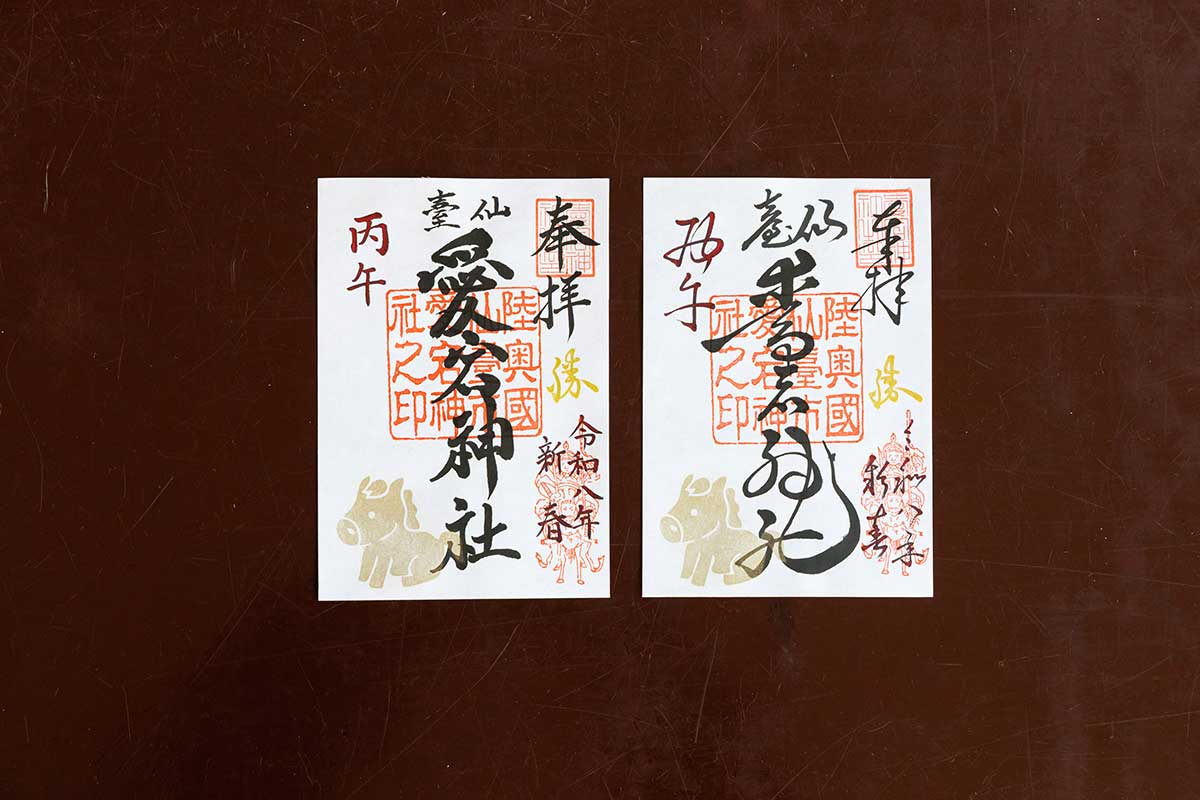 奉拝
勝
令和八年
新春
仙臺
愛宕神社
陸奥國
仙臺市
愛宕神
社之印
丙午
奉拝
勝
令和八年
新春
仙臺
愛宕神社
陸奥國
仙臺市
愛宕神
社之印
丙午